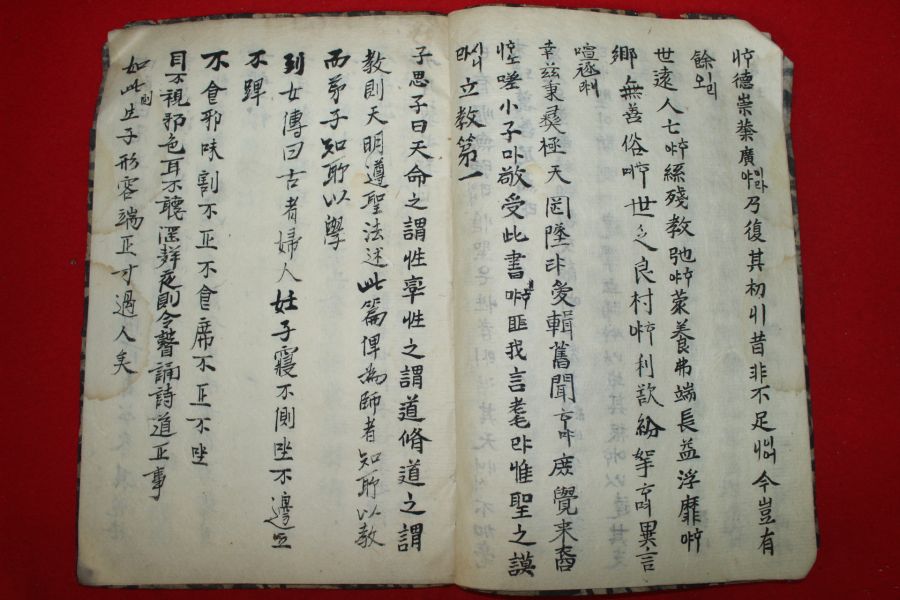 德崇業廣乃復其初昔非不足今豈有
餘오리
世遠人亡絲殘教弛蒙養弗端長益浮靡
鄕無善俗世乏良村利欲紛挐異言
喧
幸玆秉彝極天罔墜爰輯舊聞庶覺來裔
嗟小子敬受此書匪我言耄惟聖之謨
시니라 立教第一
子思子曰天命之謂性率性之謂道脩道之謂
教則天明遵聖法述此篇俾爲師者知所以教
而弟子知所以學
列女傳曰古者婦人妊子寢不側坐不邊立
不蹕
不食邪味割不正不食席不正不坐
目不視邪色耳不聽淫聲夜則令瞽誦詩道正事
如此則生子形容端正才過人矣